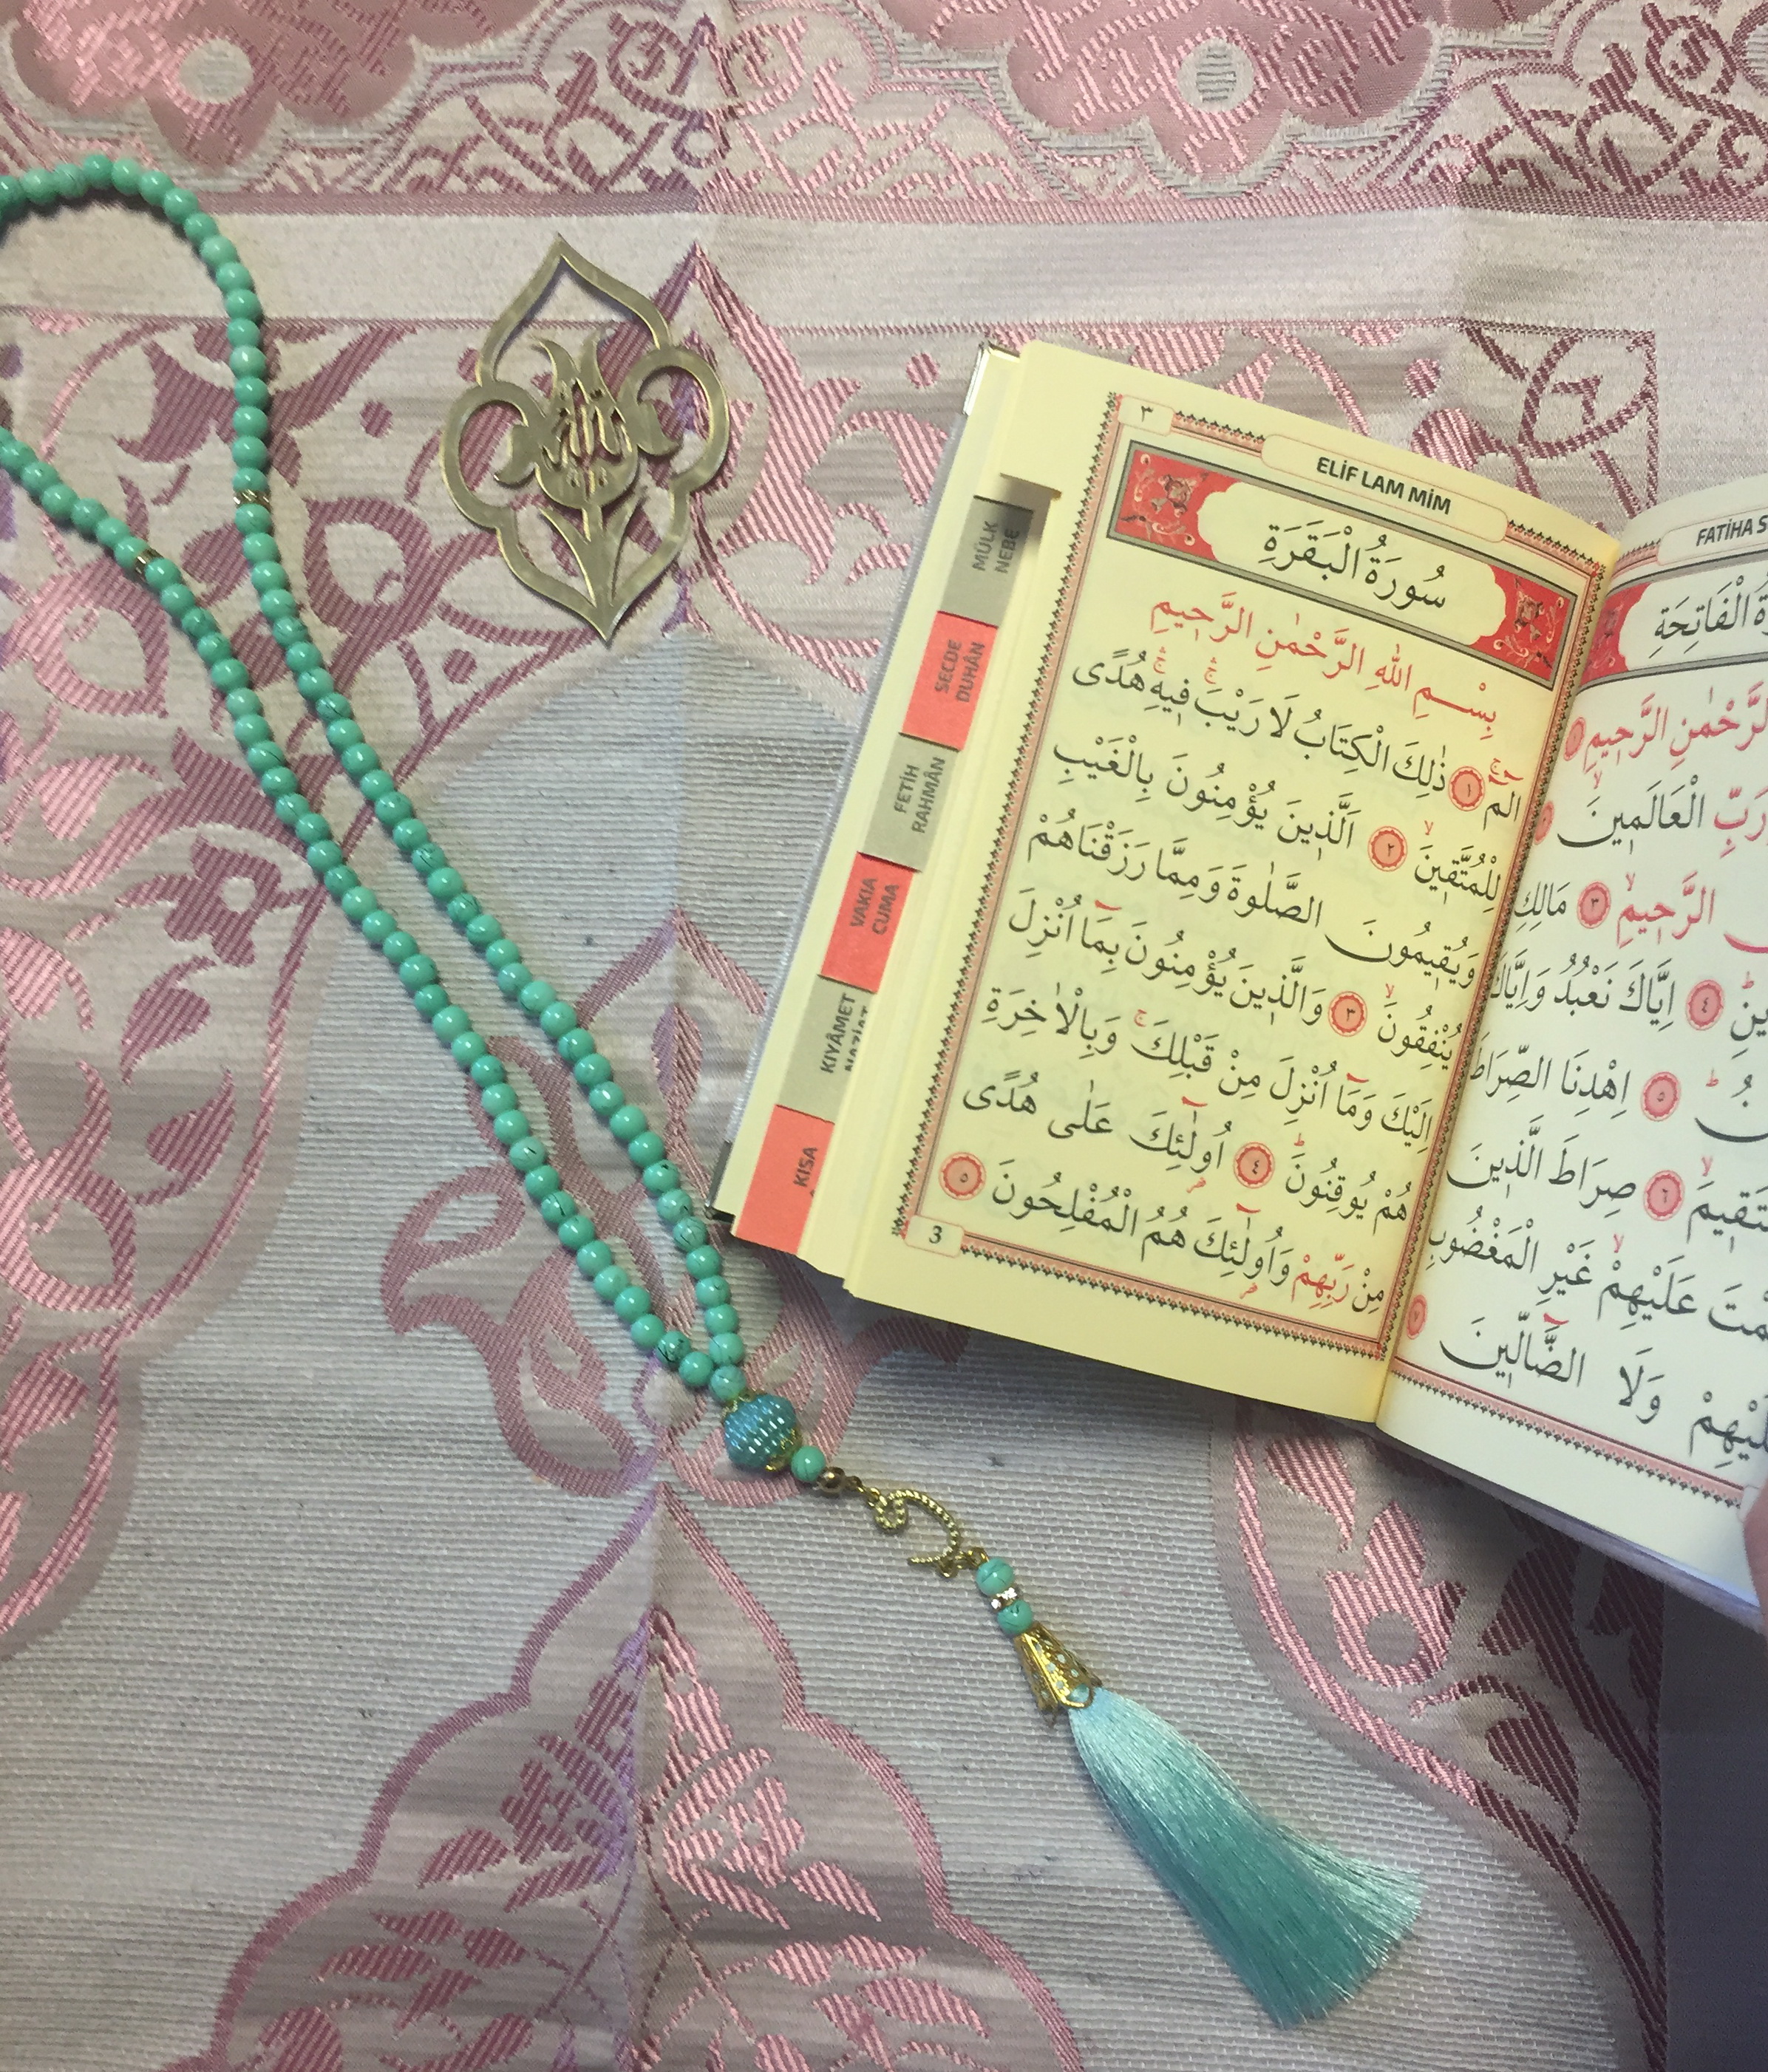 ELİF LAM MİM
٣
سُورَةُ الْبَقَرَةِ
بِسْمِ اللّٰهِ الرَّحْمٰنِ الرَّحِيمِ
الٓمٓ ١ ذٰلِكَ الْكِتَابُ لَا رَيْبَ فِيهِ هُدًى
لِلْمُتَّقِينَ ٢ اَلَّذِينَ يُؤْمِنُونَ بِالْغَيْبِ
وَيُقِيمُونَ الصَّلٰوةَ وَمِمَّا رَزَقْنَاهُمْ
يُنْفِقُونَ ٣ وَالَّذِينَ يُؤْمِنُونَ بِمَٓا اُنْزِلَ
اِلَيْكَ وَمَٓا اُنْزِلَ مِنْ قَبْلِكَ وَبِالْاٰخِرَةِ
هُمْ يُوقِنُونَ ٤ اُولٰٓئِكَ عَلٰى هُدًى
مِنْ رَبِّهِمْ وَاُولٰٓئِكَ هُمُ الْمُفْلِحُونَ ٥
3
FATİHA
الْفَاتِحَةِ
الرَّحِيمِ ١
رَبِّ الْعَالَمِينَ
الرَّحِيمِ ٣ مَالِكِ
٤ اِيَّاكَ نَعْبُدُ وَاِيَّاكَ
٥ اِهْدِنَا الصِّرَاطَ
٦ صِرَاطَ الَّذِينَ
عَلَيْهِمْ غَيْرِ الْمَغْضُوبِ
وَلَا الضَّٓالِّينَ ٧
MÜLK
NEBE
SECDE
DUHÂN
FETİH
RAHMÂN
VAKIA
CUMA
KIYÂMET
NAZİAT
KISA
الله